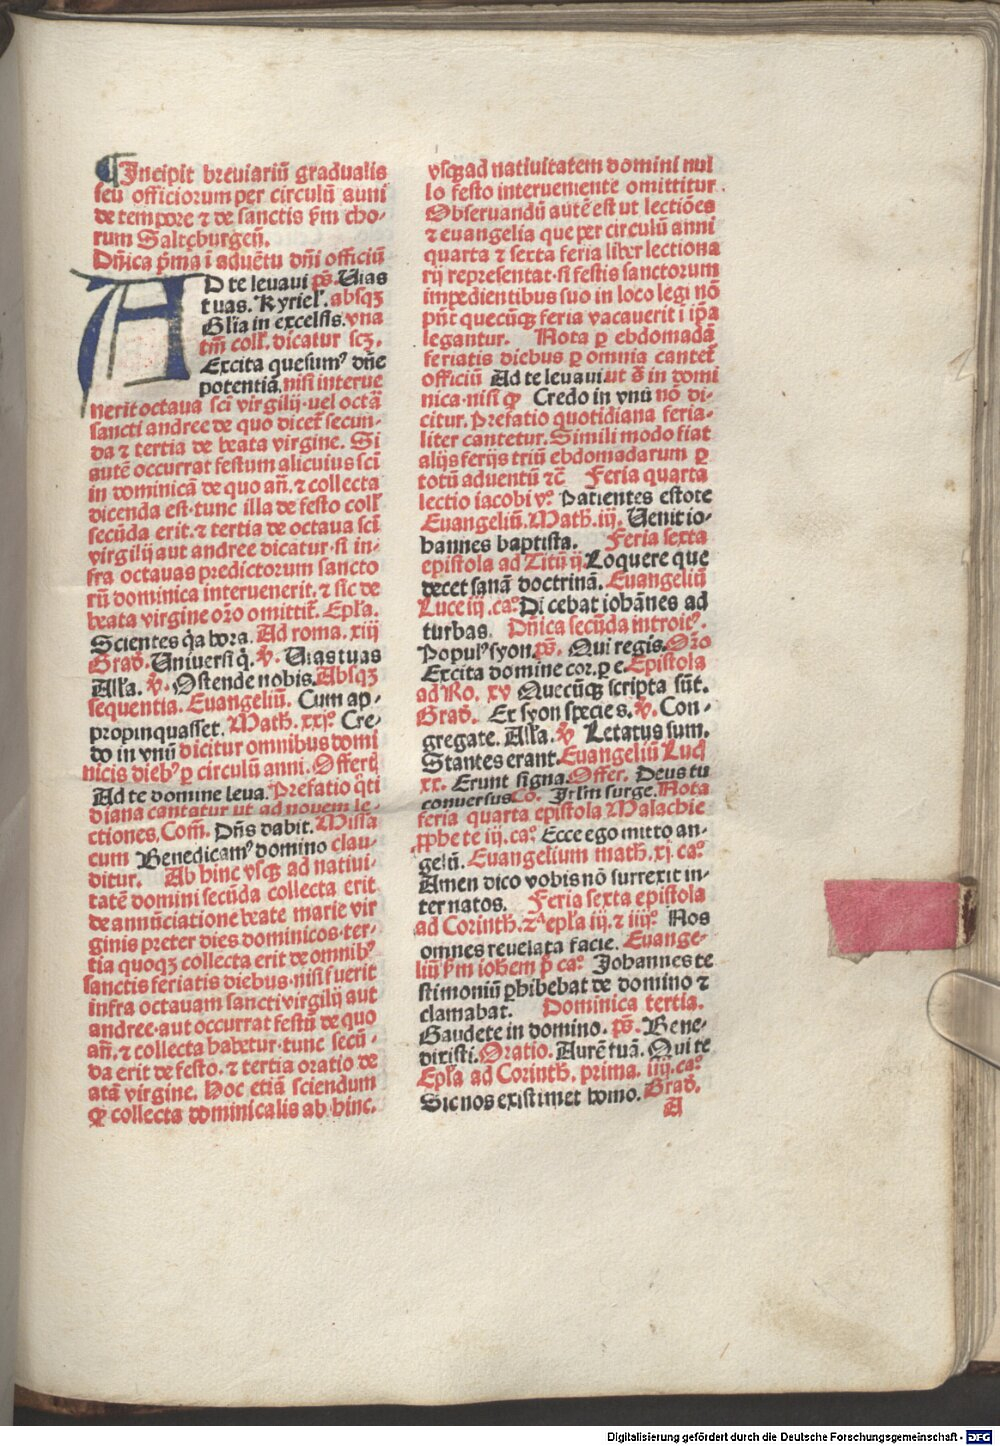 ¶ Incipit breviariū gradualis
seu officiorum per circulū anni
de tempore ⁊ de sanctis ẜm cho-
rum Saltzburgeñ.
Dñica p̄ma ī advētu dñi officiū
AD te levavi pš. Uias
tuas. Kyriel'. absqꝫ
Gl'ia in excelsis. vna
tm̄ coll'. dicatur scꝫ.
Excita quesumꝰ dñe
potentiā. nisi interue
nerit octaua sci virgilij. vel octā
sancti andree de quo dicet̄ secun-
da ⁊ tertia de beata virgine. Si
autē occurrat festum alicuius sci
in dominicā de quo añ. ⁊ collecta
dicenda est. tunc illa de festo coll'
secūda erit. ⁊ tertia de octaua sci
virgilij aut andree dicatur. si in-
fra octauas predictorum sancto
rū dominica interuenerit. ⁊ sic de
beata virgine or̄o omittit̄. Ep̄la.
Scientes q̄a hora. Ad roma. xiij
Grad. Uniuersi q̄. ℣. Uias tuas
All'a. ℣. Ostende nobis. Absqꝫ
sequentia. Euangeliū. Cum ap-
propinquasset. Math. xxjº. Cre-
do in vnū dicitur omnibus domi
nicis diebꝰ ꝑ circulū anni. Offertꝭ
Ad te domine leva. Prefatio q̄ti
diana cantatur ut ad novem le-
ctiones. Com̄. Dñs dabit. Missa
cum Benedicamꝰ domino clau-
ditur. Ab hinc vsqꝫ ad natiui-
tatē domini secūda collecta erit
de annūciatione beate marie vir
ginis preter dies dominicos. ter-
tia quoqꝫ collecta erit de omnibꝰ
sanctis feriatis diebus. nisi fuerit
infra octauam sancti virgilij aut
andree. aut occurrat festū de quo
añ. ⁊ collecta habetur. tunc secū-
da erit de festo. ⁊ tertia oratio de
atā virgine. Hoc etiā sciendum
ꝙ collecta dominicalis ab hinc.
vsqꝫ ad natiuitatem domini nul
lo festo interueniente omittitur.
Obseruandū autē est ut lectiōes
⁊ euangelia que per circulū anni
quarta ⁊ sexta feria liber lectiona
rij representat. si festis sanctorum
impedientibus suo in loco legi nō
pn̄t quecūqꝫ feria vacauerit ī ip̄a
legantur. Nota ꝑ ebdomadā
feriatis diebus ꝑ omnia cantet̄
officiū Ad te levaui ut ð in domi
nica. nisi ꝙ Credo in vnū nō di-
citur. Prefatio quotidiana feria-
liter cantetur. Simili modo fiat
alijs ferijs triū ebdomadarum ꝑ
totū aduentū ⁊c̄ Feria quarta
lectio iacobi vº. Patientes estote
Euangeliū. Math. iij. Uenit io-
hannes baptista. Feria sexta
epistola ad Titū ij. Loquere que
decet sanā doctrinā. Euangeliū
Luce iij. caº. Dicebat iohānes ad
turbas. Dñica secūda introitꝰ.
Populꝰ syon. pš. Qui regis. Or̄o
Excita domine cor. ꝑ e. Epistola
ad Ro. xv Quecūqꝫ scripta sūt.
Grad. Ex syon species. ℣. Con-
gregate. All'a. ℣ Letatus sum.
Stantes erant. Euangeliū Luc̄
xx. Erunt signa. Offer. Deus tu
conuersus Cō. Jrl'm surge. Nota
feria quarta epistola Malachie
ꝓphete iij. caº. Ecce ego mitto an-
gelū. Euangelium math. xj caº
Amen dico vobis nō surrexit in-
ter natos. Feria sexta epistola
ad Corinth. 2ᵃ ep̄la iij. ⁊ iiijº. Nos
omnes reuelata facie. Euange-
liū ẜm iohem p̄ caº. Johannes te
stimoniū ꝑhibebat de domino ⁊
clamabat. Dominica tertia.
Gaudete in domino. pš. Bene-
dixisti. Oratio. Aurē tuā. Qui te
Ep̄la ad Corinth. prima. iiij. caº
Sic nos existimet homo. Grad.
A
Digitalisierung gefördert durch die Deutsche Forschungsgemeinschaft - DFG